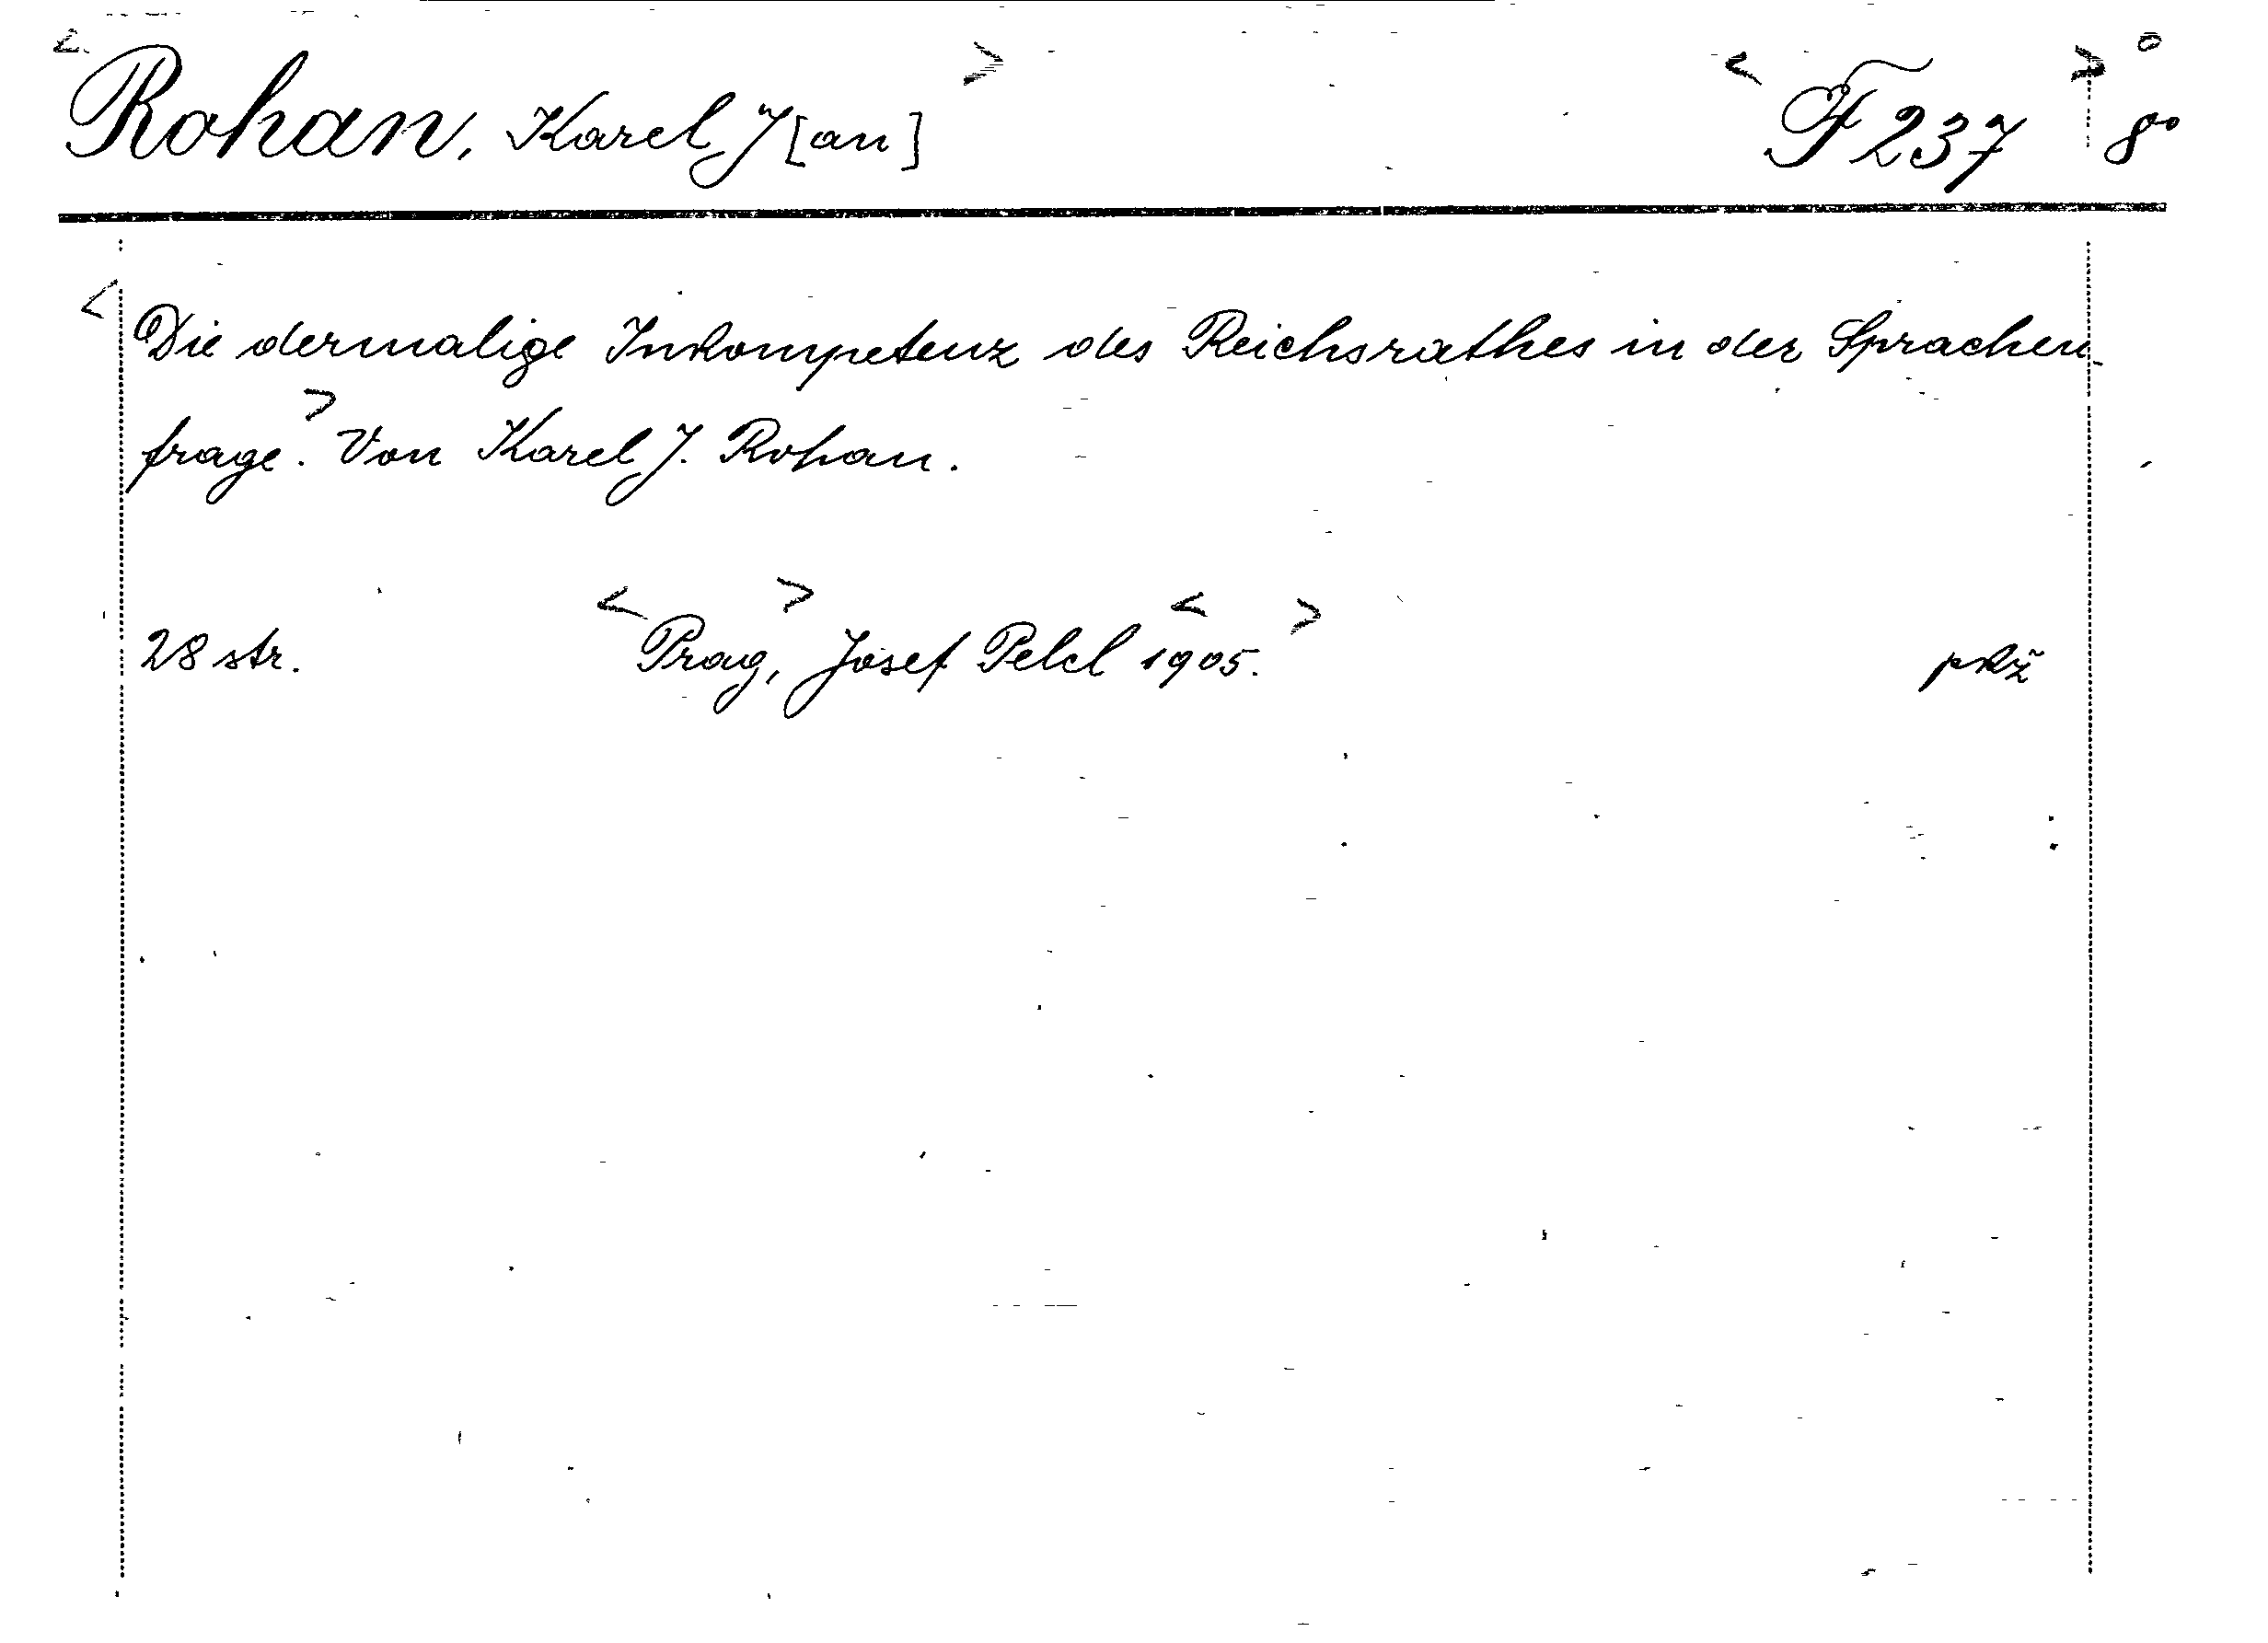 < Rohan, Karel J[an] > < F 237 > 8°
< Die dermalige Inkompetenz des Reichsrathes in der Sprachen-
frage. > Von Karel J. Rohan.
28 str. < Prag, > Josef Pelcl < 1905. > pkž